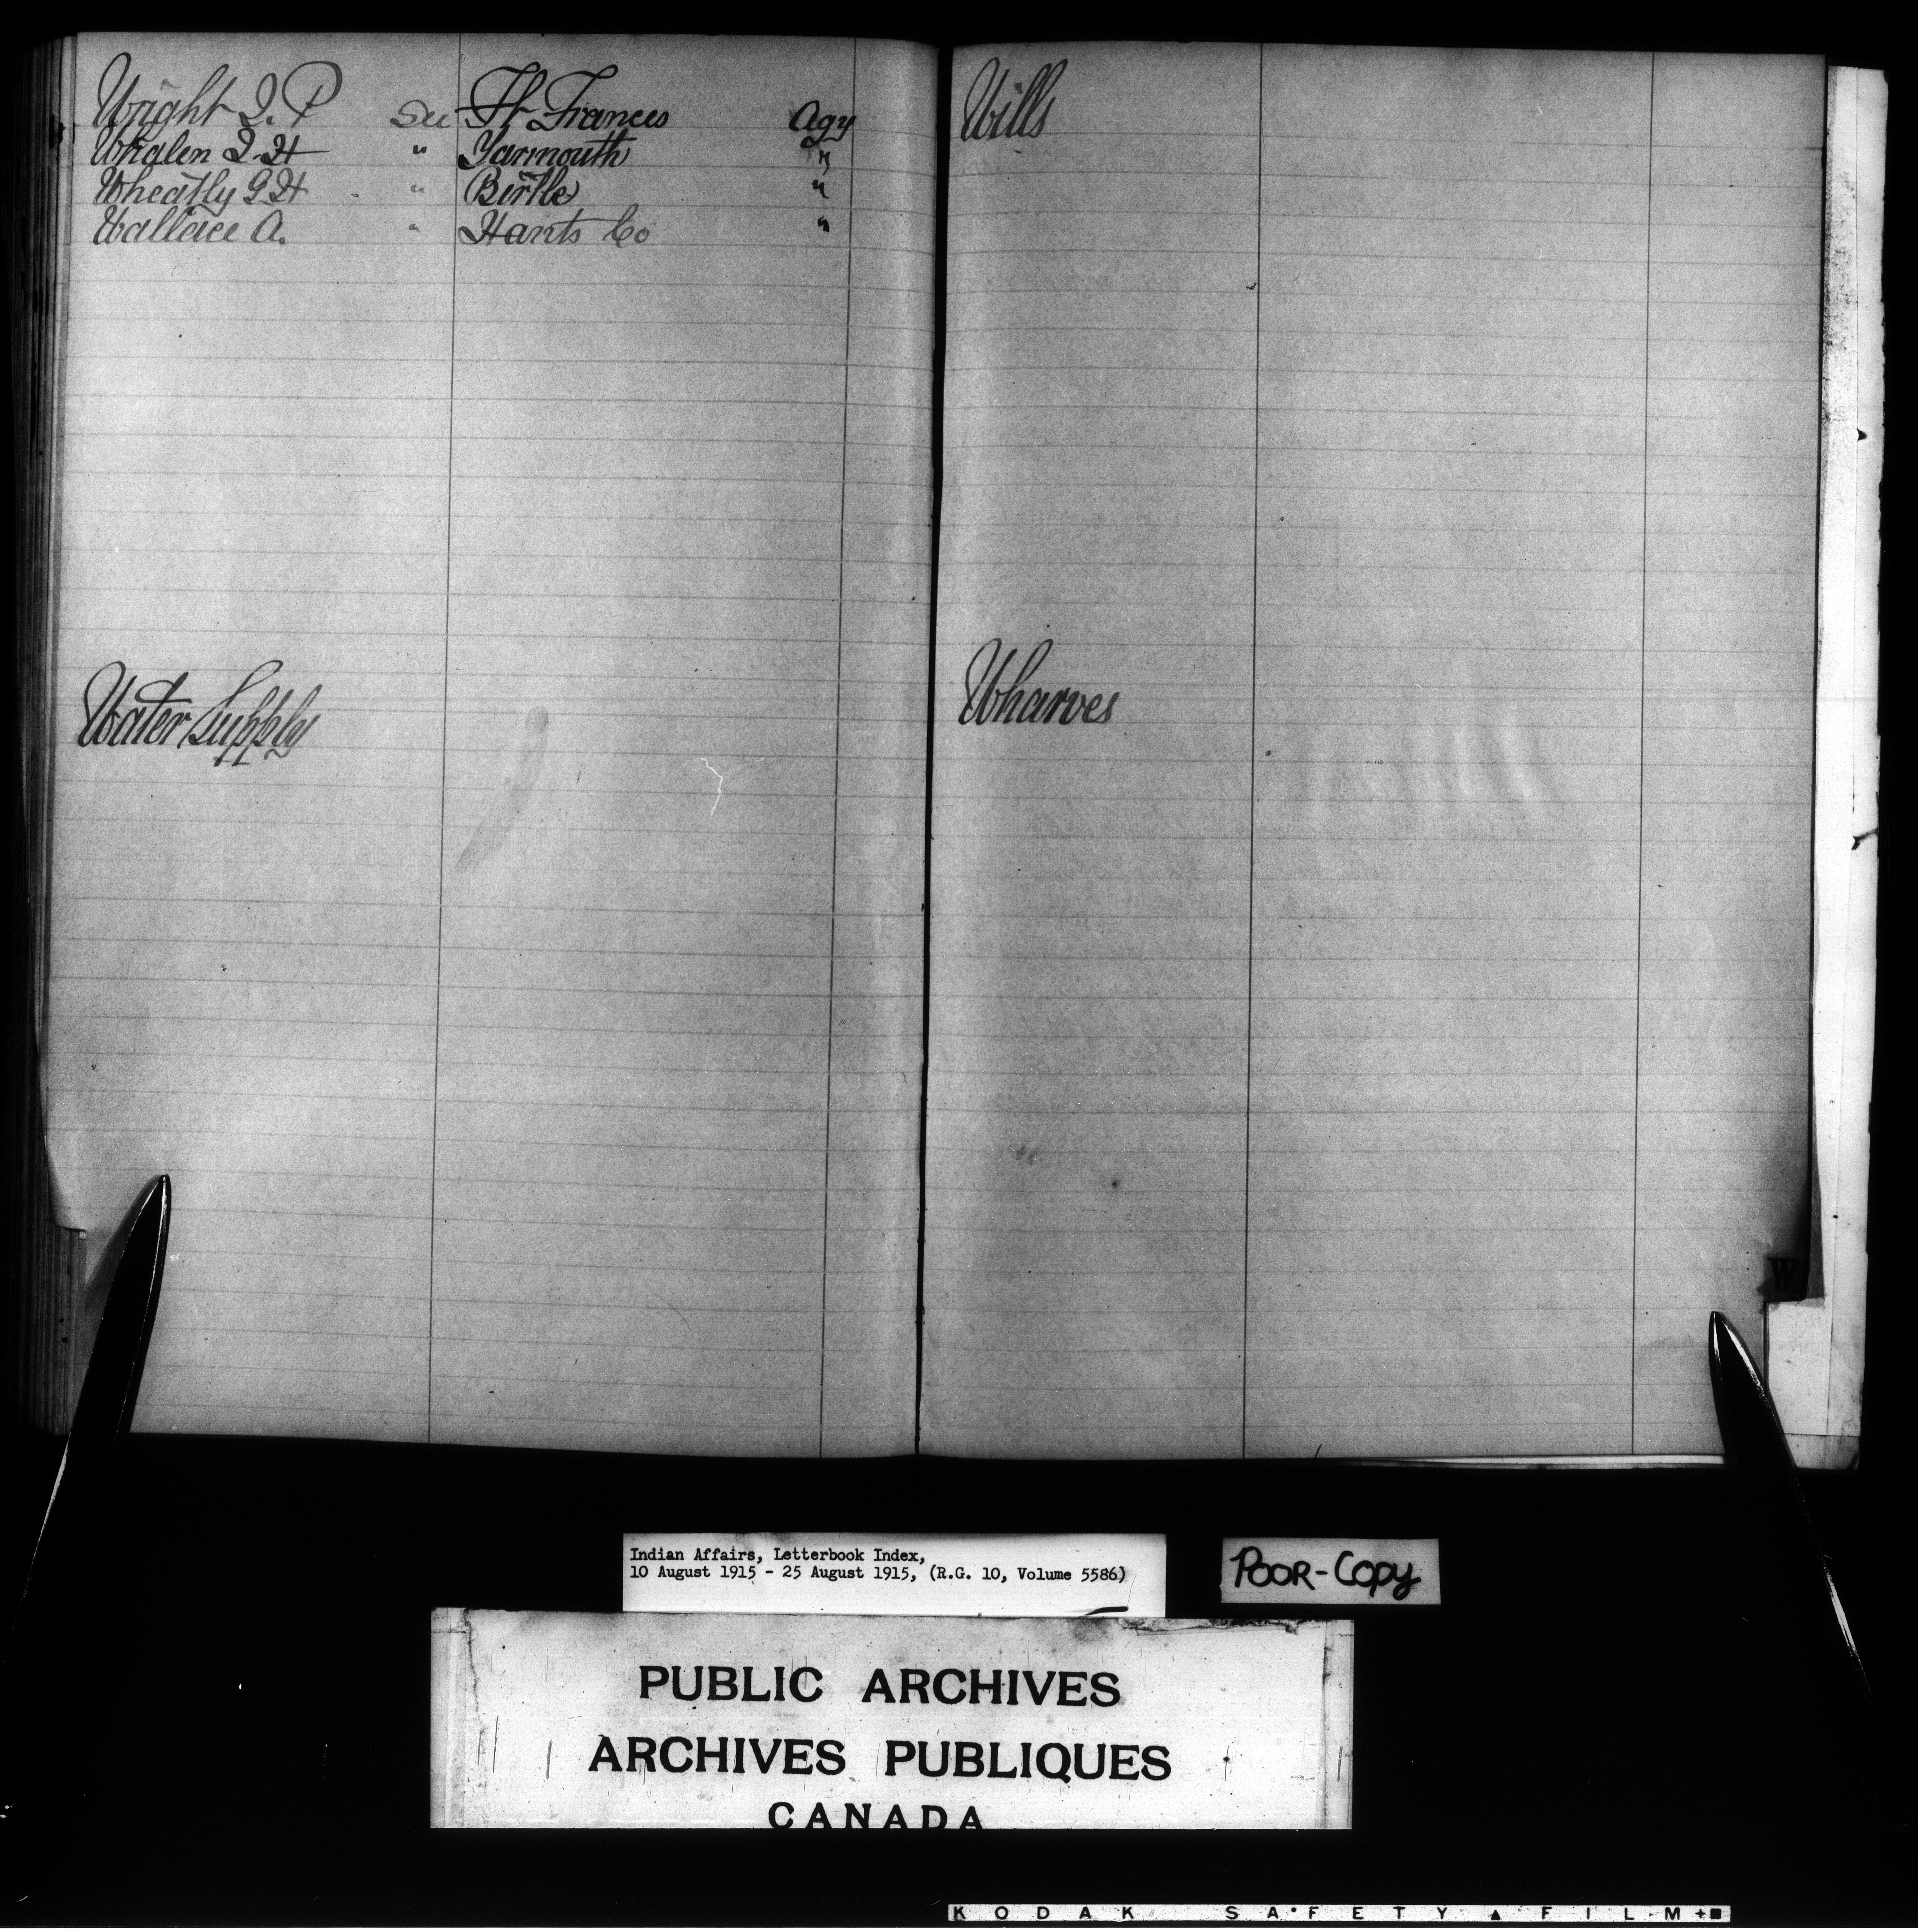 Wright J. P See Ft Frances Agy
Whalen J. H " Yarmouth "
Wheatly G H " Birtle "
Wallace A. " Hants Co "
Water Supply
Wills
Wharves
W
Indian Affairs, Letterbook Index,
10 August 1915 - 25 August 1915, (R.G. 10, Volume 5586)
POOR-COPY
PUBLIC ARCHIVES
ARCHIVES PUBLIQUES
CANADA
KODAK SAFETY ▲ FILM